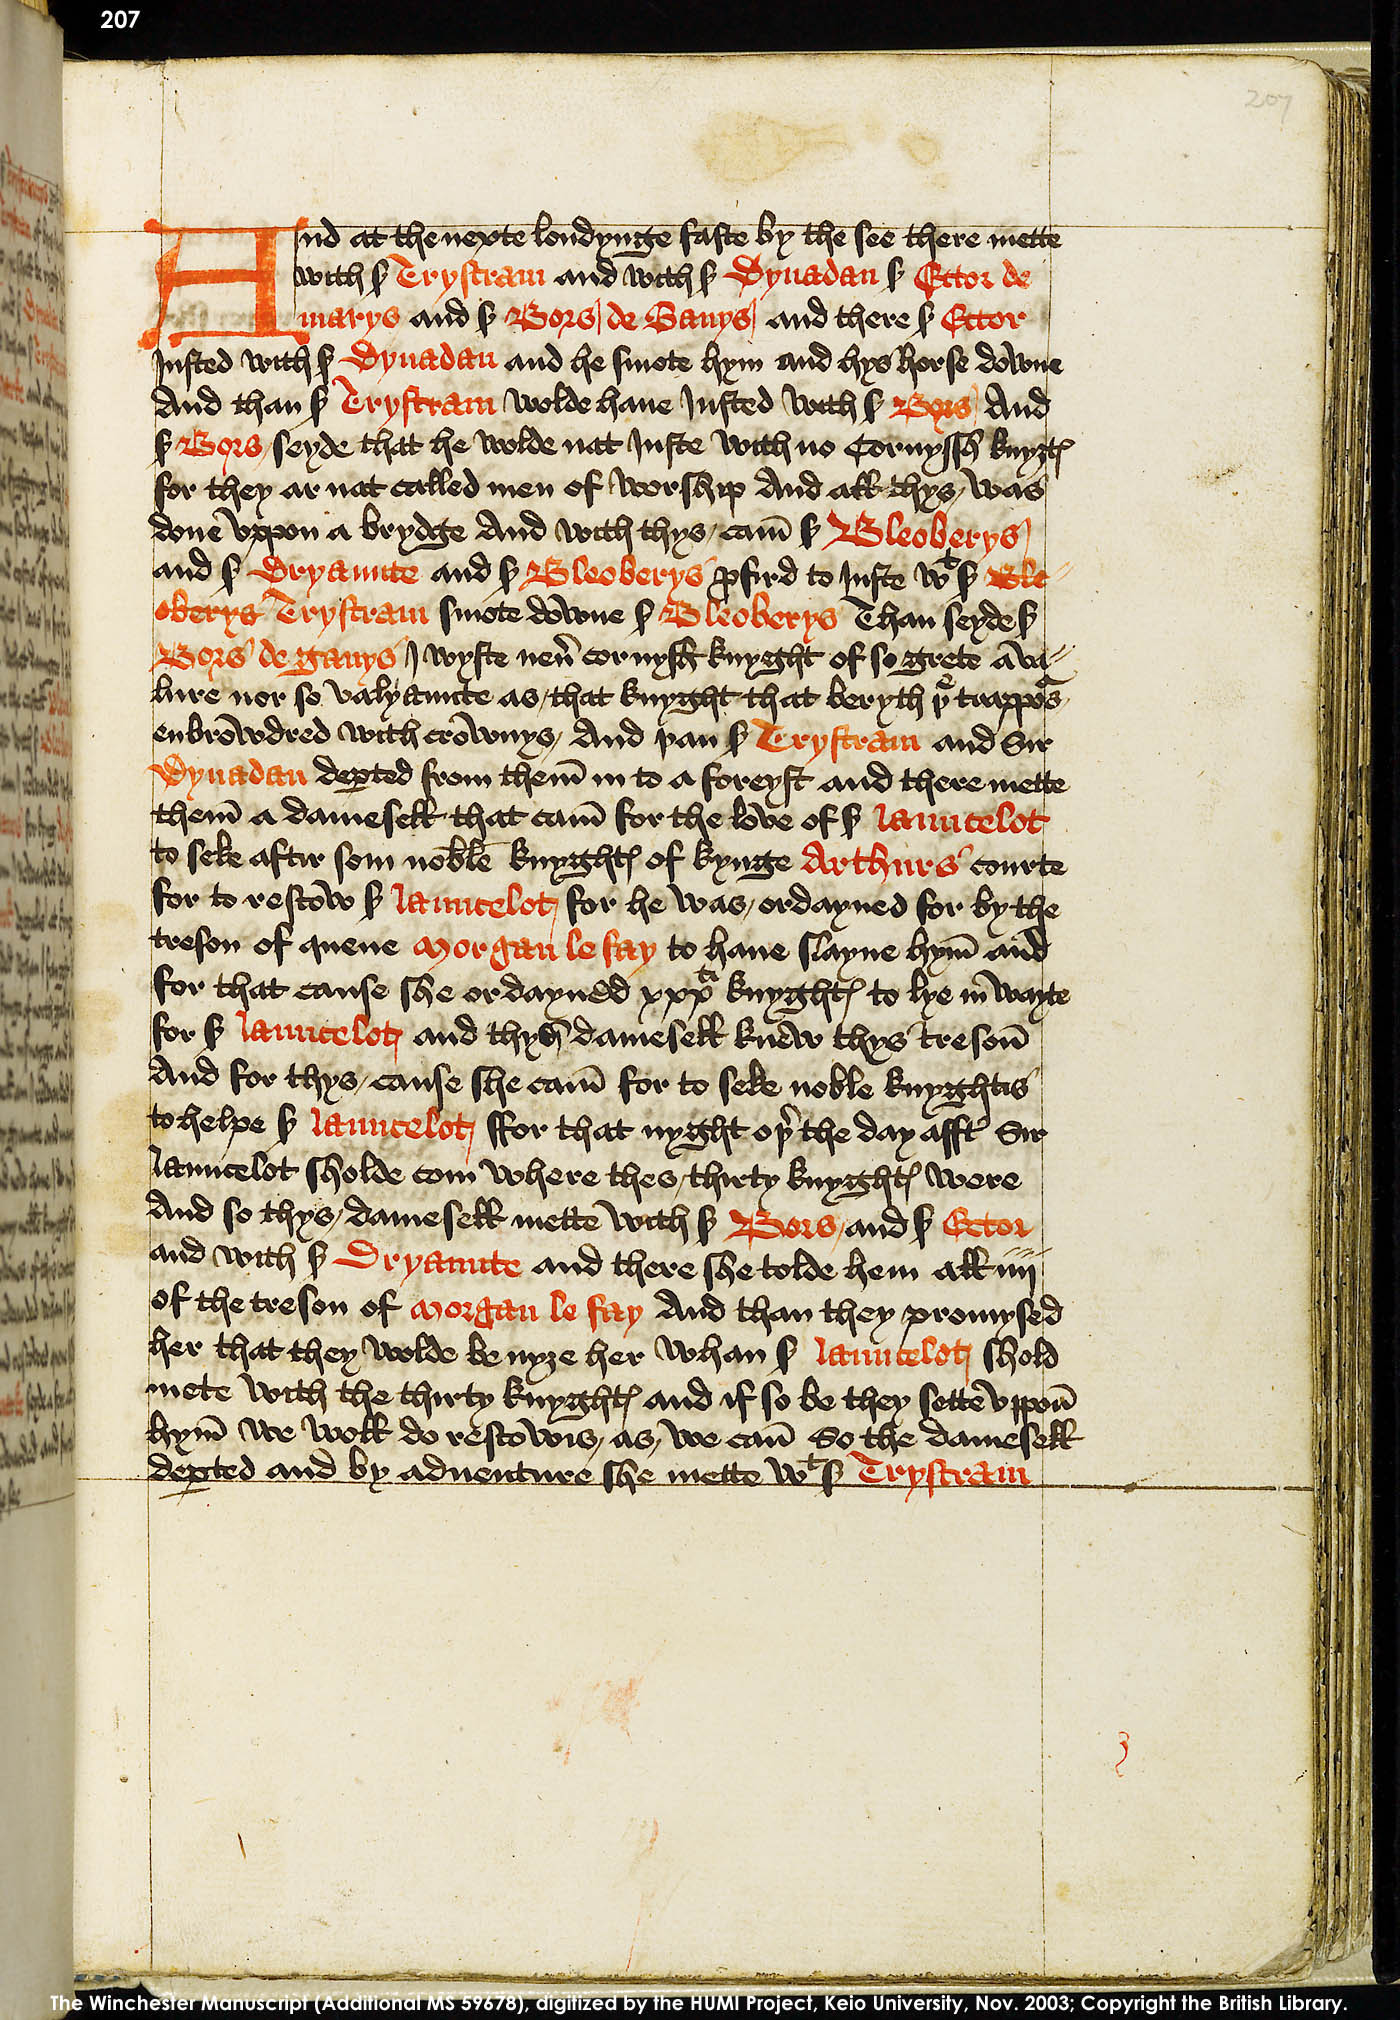 207
207
And at the nexte londynge faste by the see there mette
with ẜ Trystram and with ẜ Dynadan ẜ Ector de
marys and ẜ Bors de Ganys and there ẜ Ector
Justed with ẜ Dynadan and he smote hym and hys horse downe
And than ẜ Trystram wolde haue Justed with ẜ Bors And
ẜ Bors seyde that he wolde nat Juste with no Cornyssh knyȝtꝭ
for they ar nat called men of worship And all thys was
done vppon a brydge And with thys cam̄ ẜ Bleoberys
and ẜ Dryaunte and ẜ Bleoberys ꝓfird to Juste wᵗ ẜ Ble
oberys Trystram smote downe ẜ Bleoberys Than seyde ẜ
Bors de ganys I wyste neu̾ cornyssh knyght of so grete a va
lure nor so valyaunte as that knyght that beryth þᵉ trappoˢ
enbrowdred with crownys And þan ẜ Trystram and Sir
Dynadan deꝑted from them̄ in to a foreyst and there mette
them̄ a damesell that cam̄ for the love of ẜ launcelot
to seke aftir som noble knyghtꝭ of kynge Arthurs courte
for to rescow ẜ launcelot for he was ordayned for by the
treson of quene Morgan le fay to haue slayne hym̄ and
for that cause she ordayned xxxᵗⁱ knyghtꝭ to lye in wayte
for ẜ launcelot and thys damesell knew thys treson̄
And for thys cause she cam̄ for to seke noble knyghtis
to helpe ẜ launcelot ffor that nyght oþ̾ the day afft̾ Sir
launcelot sholde com where thes thirty knyghtꝭ were
And so thys damesell mette with ẜ Bors and ẜ Ector
and with ẜ Dryaunte and there she tolde hem all iiij
of the treson of Morgan le fay And than they promysed
her that they wolde be nyȝe her whan ẜ launcelot shold
mete with the thirty knyghtꝭ and if so be they sette vppon̄
hym̄ we woll do rescowis as we can̄ So the damesell
deꝑted and by aduenture she mette wᵗ ẜ Trystram
The Winchester Manuscript (Additional MS 59678), digitized by the HUMI Project, Keio University, Nov. 2003; Copyright the British Library.